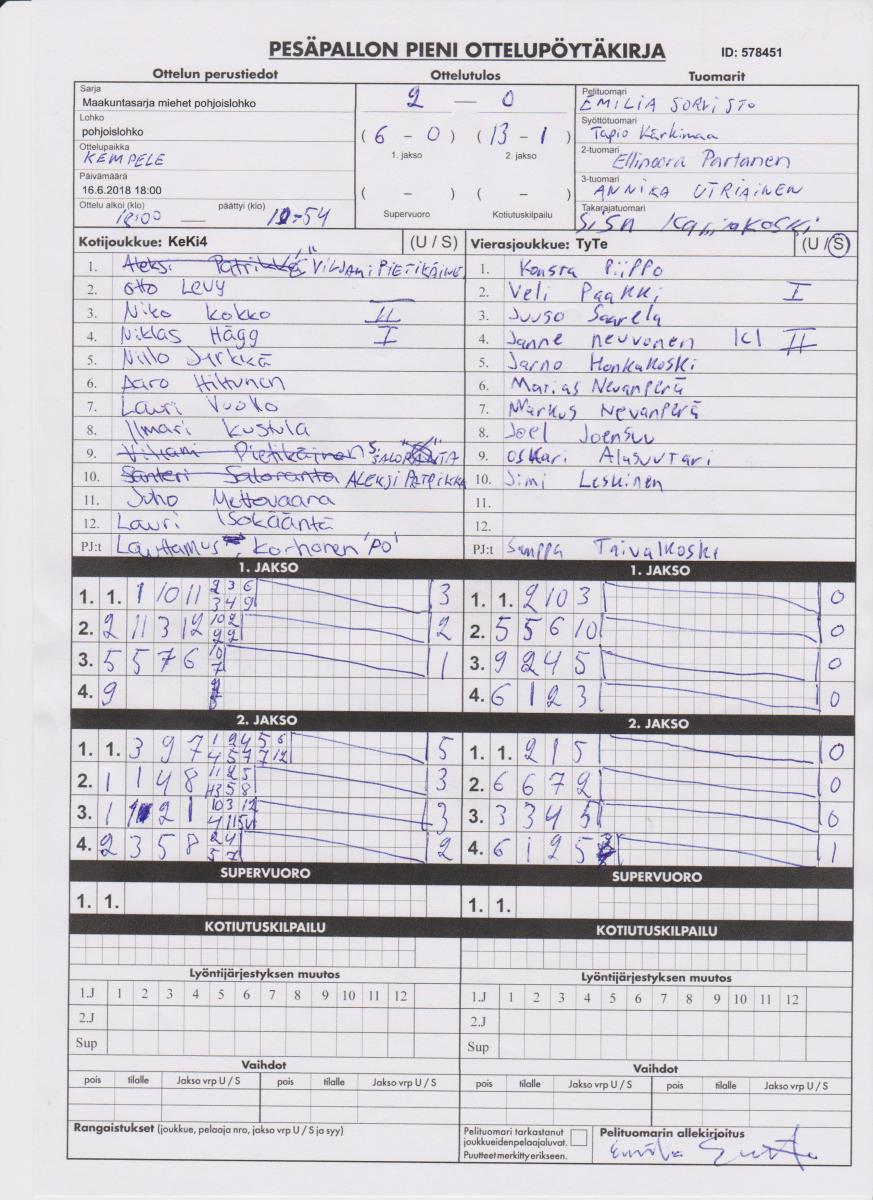 PESÄPALLON PIENI OTTELUPÖYTÄKIRJA ID: 578451
Ottelun perustiedot Ottelutulos Tuomarit
Sarja
Maakuntasarja miehet pohjoislohko
Lohko
pohjoislohko
Ottelupaikka
KEMPELE
Päivämäärä
16.6.2018 18:00
Ottelu alkoi (klo) päättyi (klo)
18:00 —
2 — 0
( 6 - 0 ) ( 13 - 1 )
1. jakso 2. jakso
( - ) ( - )
Supervuoro Kotiutuskilpailu
Pelituomari
EMILIA SORVISTO
Syöttötuomari
Tapio Kärkimaa
2-tuomari
Ellinoora Partanen
3-tuomari
ANNIKA UTRIAINEN
Takarajatuomari
Kotijoukkue: KeKi4 (U / S)
1. Aleksi Patrikka VILJAMI PIETIKÄINEN
2. Otto Levy
3. Niko Kokko II
4. Niklas Hägg I
5. Niilo Jyrkkä
6. Aaro Hiltunen
7. Lauri Vuoko
8. Ilmari Kustula
9. Viljami Pietikäinen S. SALORANTA
10. Santeri Saloranta ALEKSI PATRIKKA
11. Juho Mettovaara
12. Lauri Isokääntä
PJ:t Lauttamus, Korhonen 'PO'
Vierasjoukkue: TyTe (U / S)
1. Konsta Piippo
2. Veli Paakki I
3. Juuso Saarela
4. Janne Neuvonen ICI II
5. Jarno Honkakoski
6. Matias Nevanperä
7. Markus Nevanperä
8. Joel Joensuu
9. Oskari Alasuutari
10. Jimi Leskinen
11.
12.
PJ:t Samppa Taivalkoski
1. JAKSO
1. 1. 1 10 11 3
2. 2 11 3 12 2
3. 5 5 7 6 1
4. 9
1. JAKSO
1. 1. 2 10 3 0
2. 5 5 6 10 0
3. 9 2 4 5 0
4. 6 1 2 3 0
2. JAKSO
1. 1. 3 9 7 5
2. 1 1 4 8 3
3. 1 2 1 3
4. 2 3 5 8 2
2. JAKSO
1. 1. 2 1 5 0
2. 6 6 7 2 0
3. 3 3 4 5 0
4. 6 1 2 5 1
SUPERVUORO
1. 1.
SUPERVUORO
1. 1.
KOTIUTUSKILPAILU
KOTIUTUSKILPAILU
Lyöntijärjestyksen muutos
1.J 1 2 3 4 5 6 7 8 9 10 11 12
2.J
Sup
Lyöntijärjestyksen muutos
1.J 1 2 3 4 5 6 7 8 9 10 11 12
2.J
Sup
Vaihdot
pois tilalle Jakso vrp U / S pois tilalle Jakso vrp U / S
Vaihdot
pois tilalle Jakso vrp U / S pois tilalle Jakso vrp U / S
Rangaistukset (joukkue, pelaaja nro, jakso vrp U / S ja syy)
Pelituomari tarkastanut
joukkueidenpelaajaluvat.
Puutteet merkitty erikseen.
Pelituomarin allekirjoitus